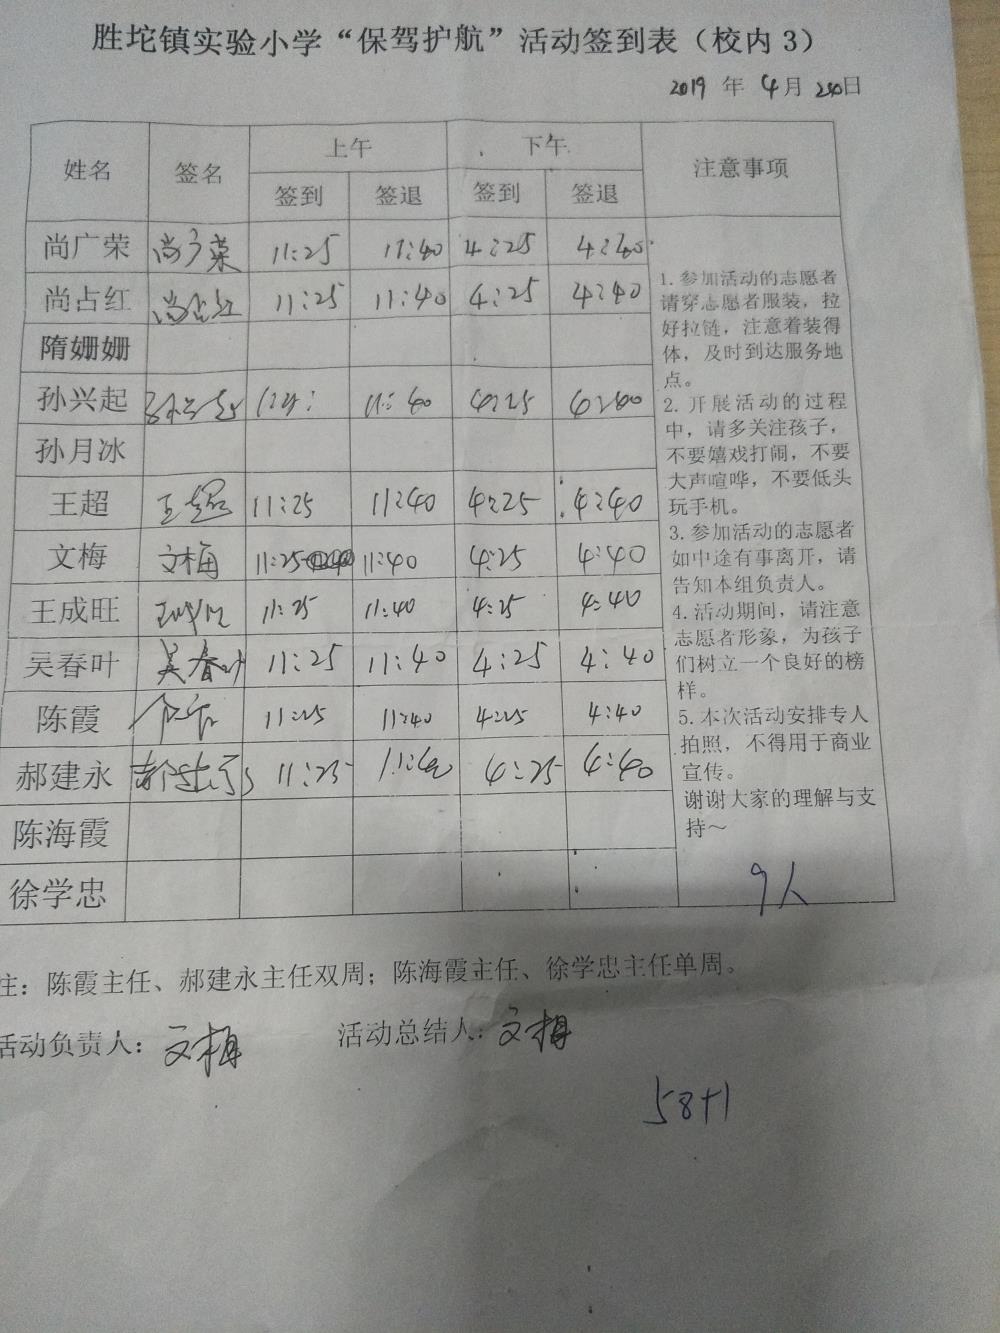 胜坨镇实验小学“保驾护航”活动签到表（校内3）
2019 年 4月 日
姓名 签名 上午 下午 注意事项
签到 签退 签到 签退
尚广荣 尚广荣 11:25 11:40 4:25 4:40
尚占红 尚占红 11:25 11:40 4:25 4:40
隋姗姗
孙兴起 孙兴起 11:40 4:25 4:40
孙月冰
王超 王超 11:25 11:40 4:25 4:40
文梅 文梅 11:25 11:40 4:25 4:40
王成旺 王成旺 11:25 11:40 4:25 4:40
吴春叶 吴春叶 11:25 11:40 4:25 4:40
陈霞 陈霞 11:25 11:40 4:25 4:40
郝建永 郝建永 11:25 11:40 4:25 4:40
陈海霞
徐学忠
1.参加活动的志愿者
请穿志愿者服装，拉
好拉链，注意着装得
体，及时到达服务地
点。
2.开展活动的过程
中，请多关注孩子，
不要嬉戏打闹，不要
大声喧哗，不要低头
玩手机。
3.参加活动的志愿者
如中途有事离开，请
告知本组负责人。
4.活动期间，请注意
志愿者形象，为孩子
们树立一个良好的榜
样。
5.本次活动安排专人
拍照，不得用于商业
宣传。
谢谢大家的理解与支
持～
9人
注：陈霞主任、郝建永主任双周；陈海霞主任、徐学忠主任单周。
活动负责人：文梅 活动总结人：文梅
58+1